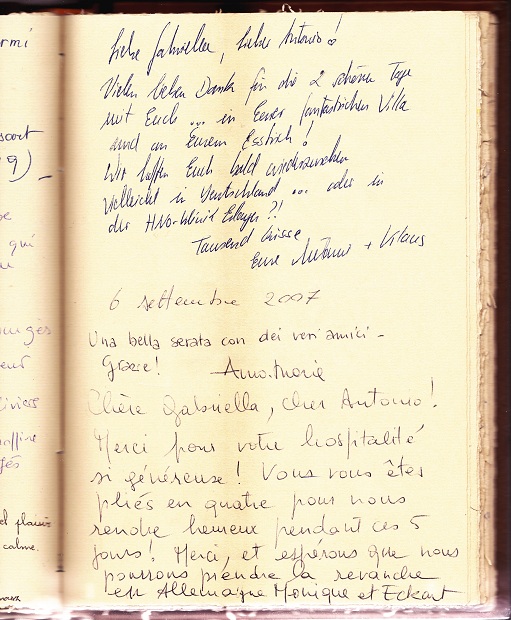 Liebe Gabriella, lieber Antonio!
Vielen lieben Dank für die 2 schönen Tage
mit Euch ... in Eurer fantastischen Villa
und an Eurem Esstisch!
Wir hoffen Euch bald wiederzusehen
vielleicht in Deutschland ... oder in
der HNO-Klinik ?!
Tausend Grüsse
Eure + Klaus
6 settembre 2007
Una bella serata con dei veri amici -
Grazie! Annamarie
Chère Gabriella, cher Antonio!
Merci pour votre hospitalité
si généreuse! Vous vous êtes
pliés en quatre pour nous
rendre heureux pendant ces 5
jours! Merci, et espérons que nous
pourrons prendre la revanche
en Allemagne Monique et Eckart
rmi
9)
qui
el plaisir
calme.